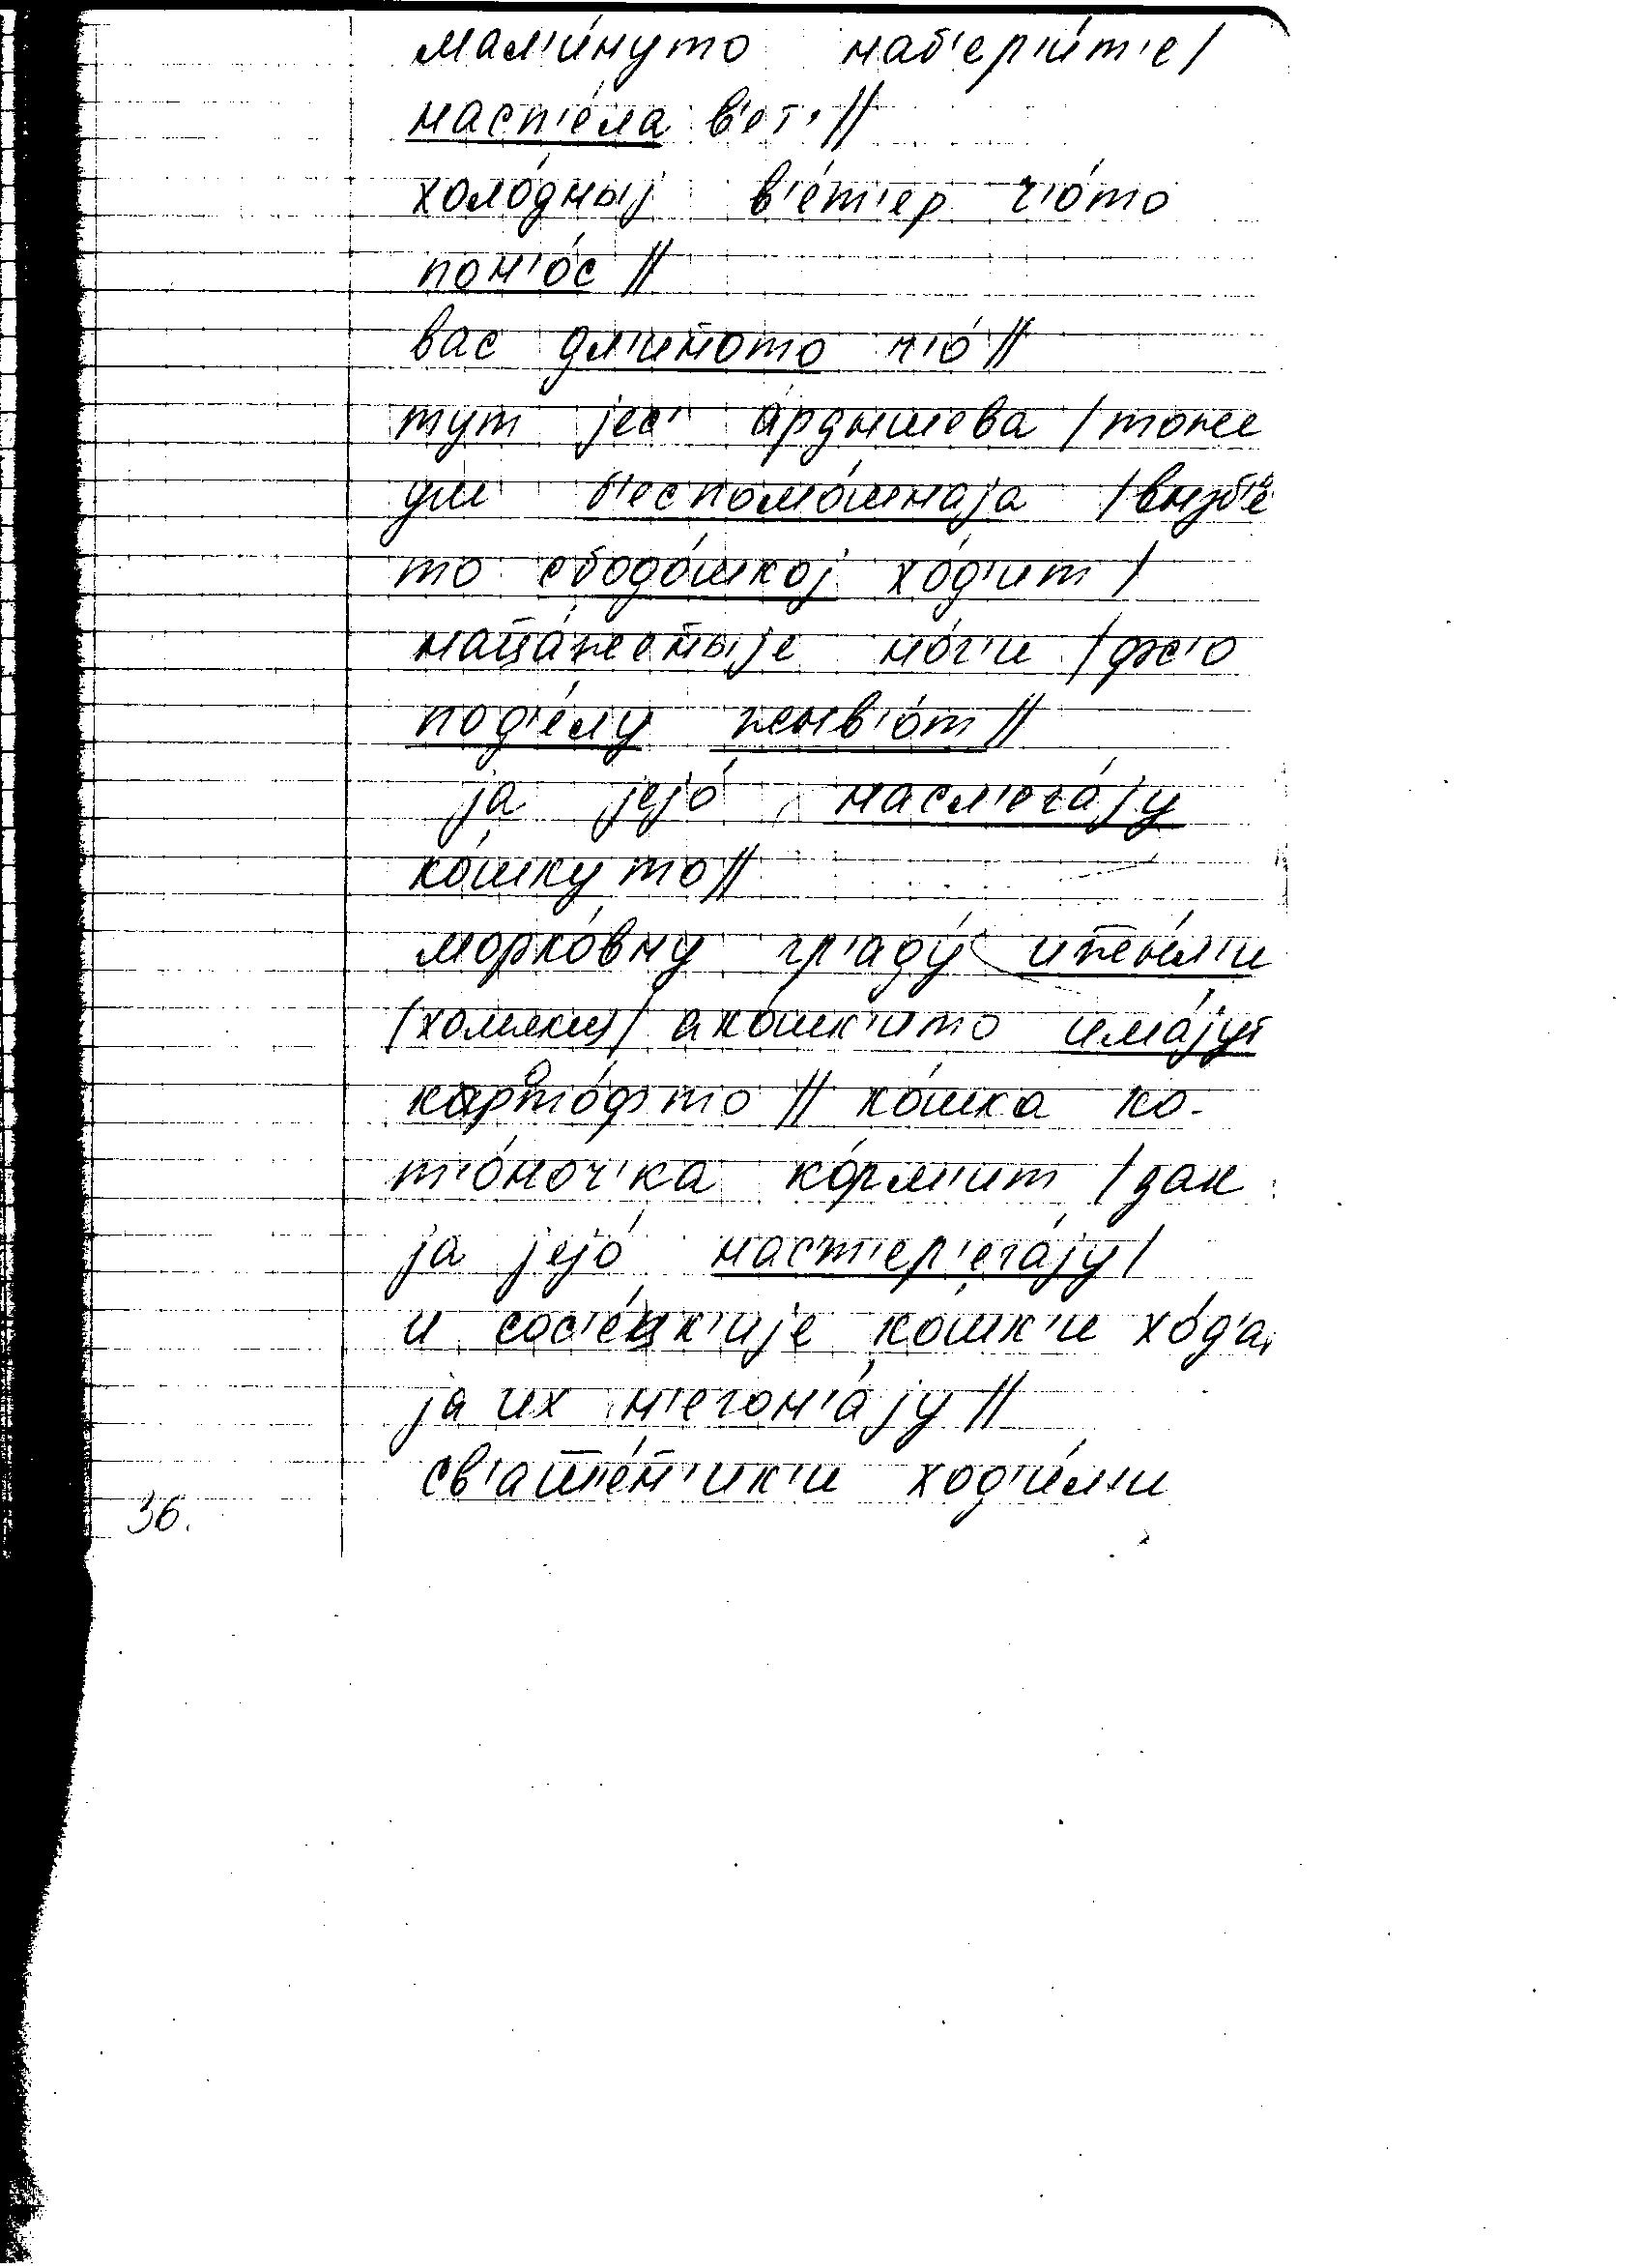 мал'и́нуто наб'ер'и́т'е /
насп'е́ла в'ет' //
холо́дныј в'е́т'ер ч'о́то
пон'о́с //
вас дл'и́ното н'о́ //
тут јес' а́рдышева / тоже
б'еспомо́шнаја /
то сбодо́шкој хо́д'ит /
но́г'и /
под'е́лу жыв'о́т //
ја јејо́ насл'ега́ју
ко́шку то //
морко́вну гр'аду́ ижы́л'и
/хомяки/ ако́шк'ито има́јут
карто́фто // ко́шка ко-
т'о́ноч'ка ко́рм'ит / дак
ја јејо́ наст'ер'ега́ју /
и сос'е́цк'ије кошк'и хо́д'а,
ја их н'егон'а́ју //
св'ашшэ́н'ик'и ход'и́л'и
36.